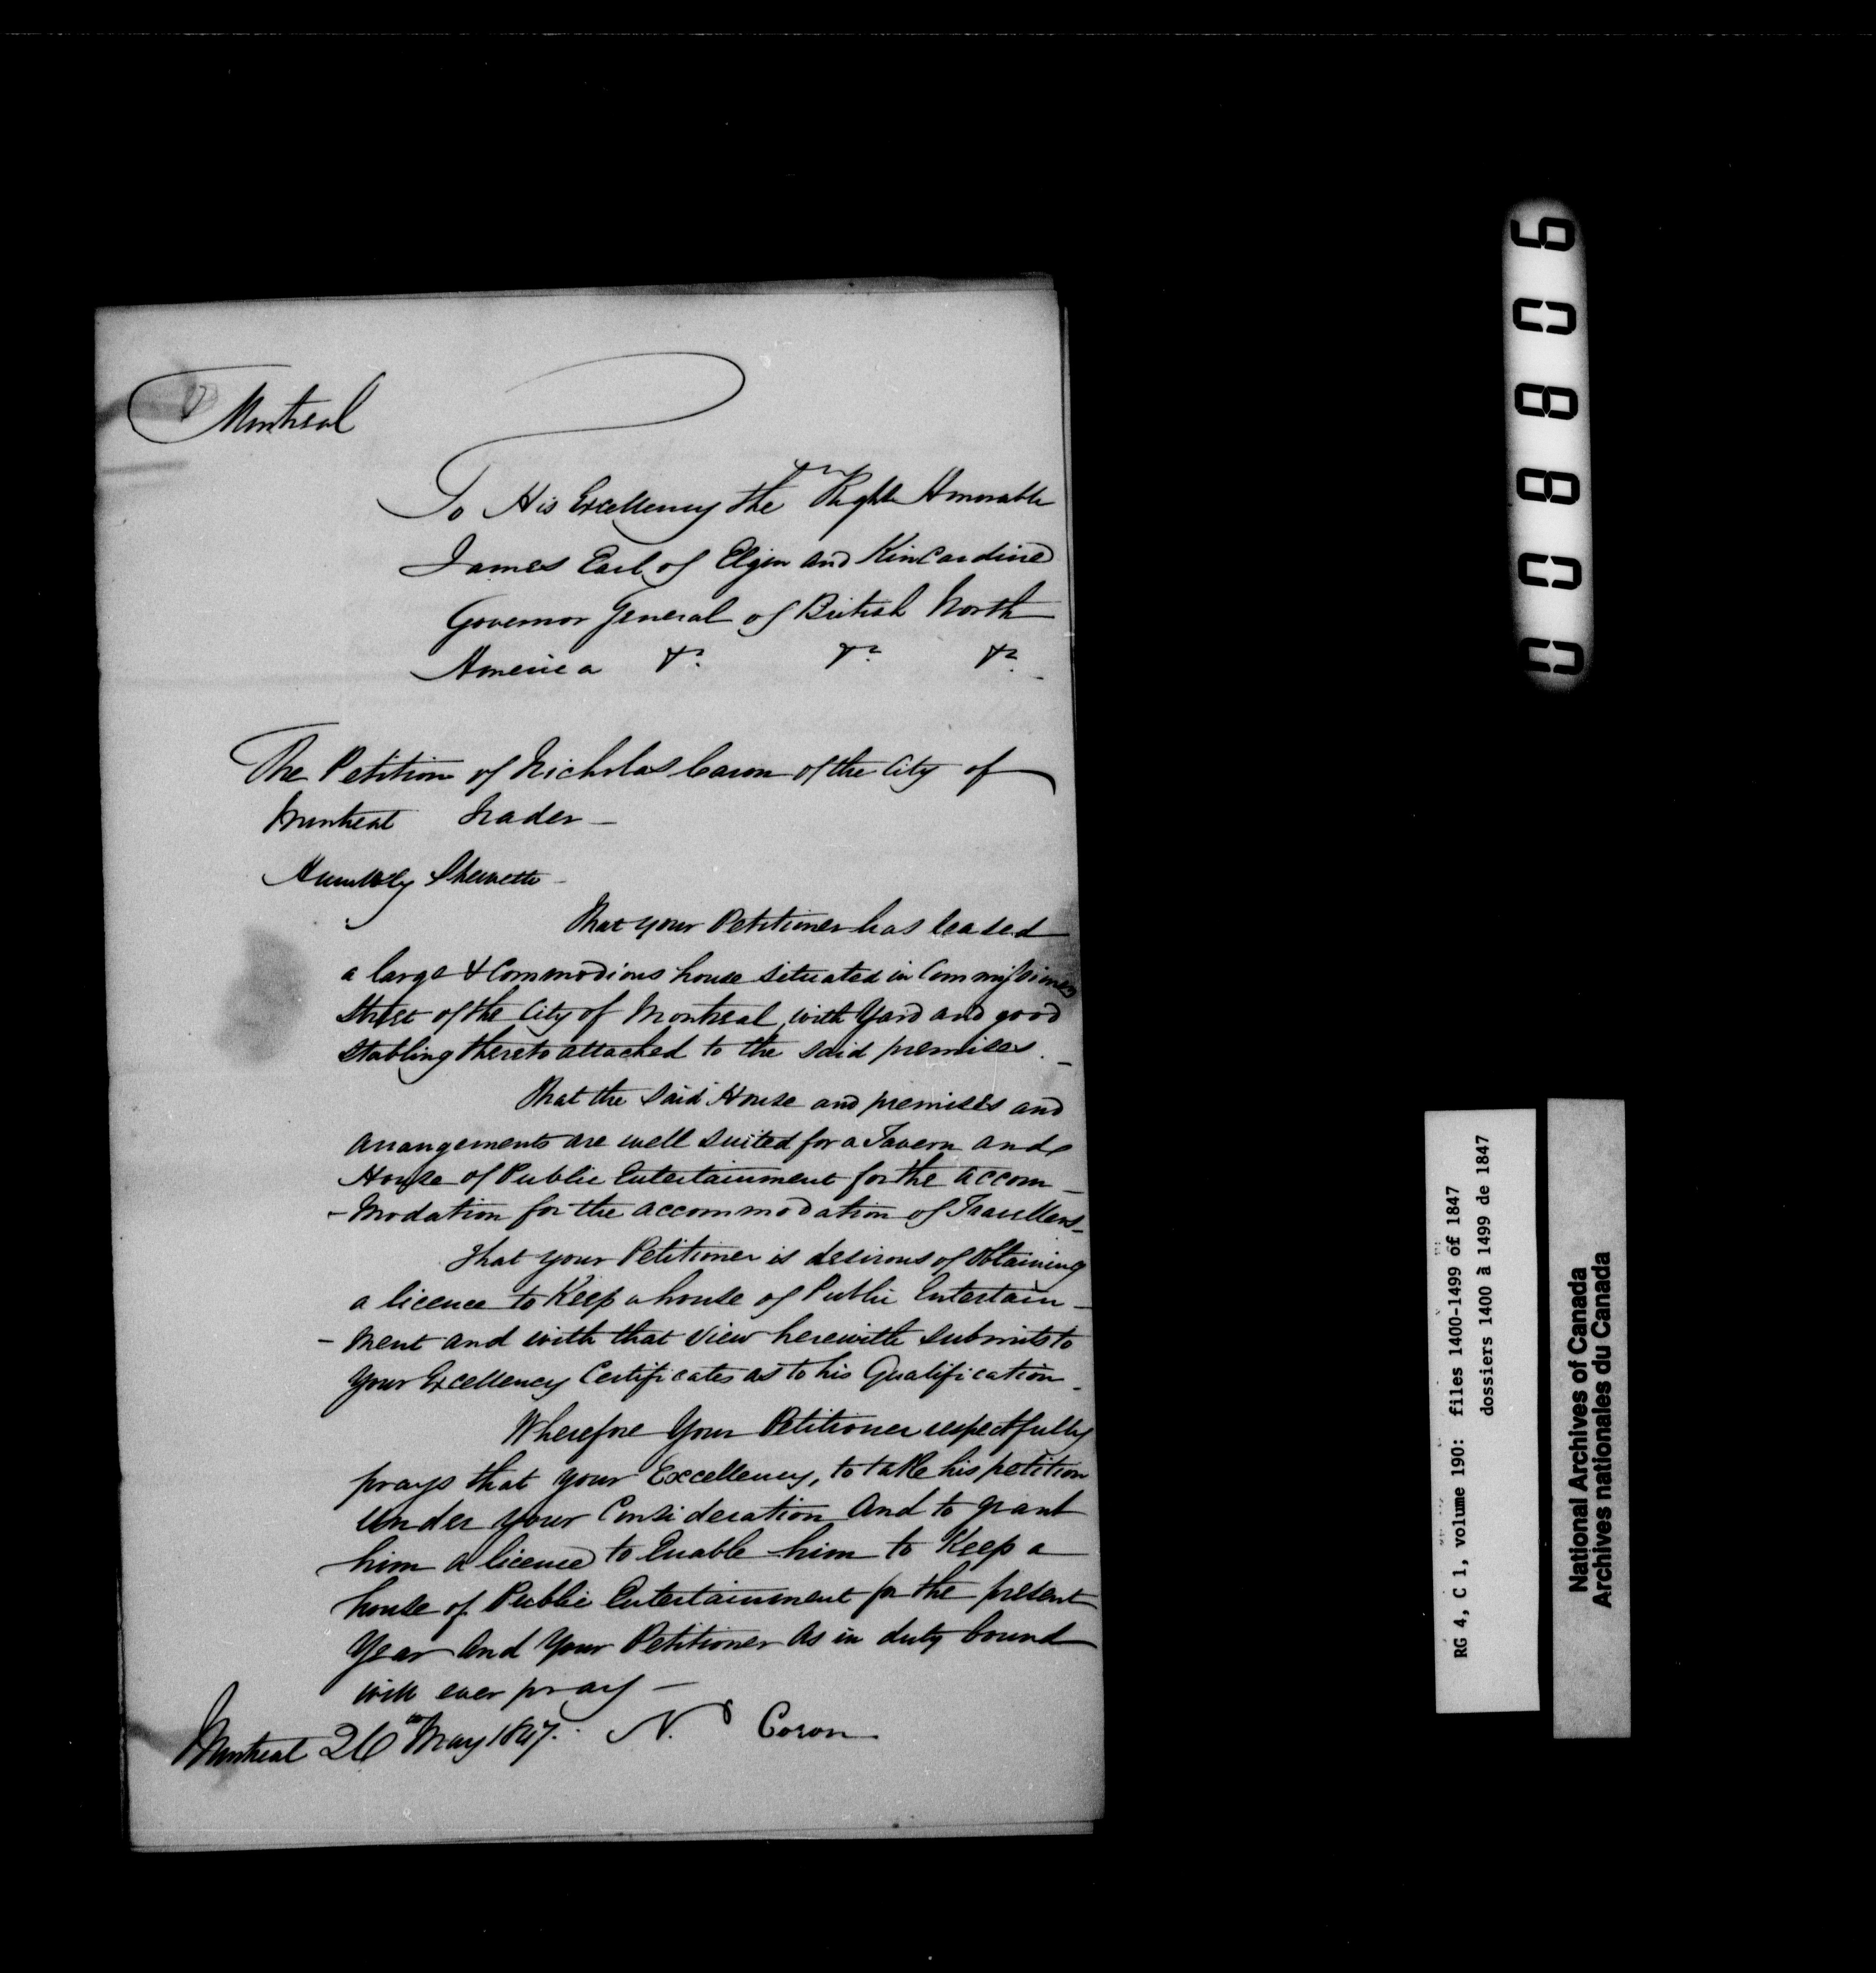 Montreal
To His Excellency the Right Honorable
James Earl of Elgin and Kincardine
Governor General of British North
America &c. &c. &c.
The Petition of Nicholas Caron of the City of
Montreal Trader —
Humbly Sheweth —
That your Petitioner has leased
a large & Commodious house situated in Commissioner
Street of the City of Montreal, with Yard and good
stabling thereto attached to the said premises. —
That the said House and premises and
arrangements are well suited for a Tavern and
House of Public Entertainment for the accom —
- modation for the accommodation of Travellers —
That your Petitioner is desirous of Obtaining
a licence to Keep a house of Public Entertain —
- ment and with that View herewith submits to
your Excellency Certificates as to his Qualification —
Wherefore Your Petitioner respectfully
prays that your Excellency, to take his petition
Under your Consideration And to grant
him a licence to Enable him to Keep a
house of Public Entertainment for the present
Year And Your Petitioner As in duty bound
will ever pray —
Montreal 26th May 1847. N. Coron
000880 6
RG 4, C 1, volume 190: files 1400-1499 of 1847
dossiers 1400 à 1499 de 1847
National Archives of Canada
Archives nationales du Canada